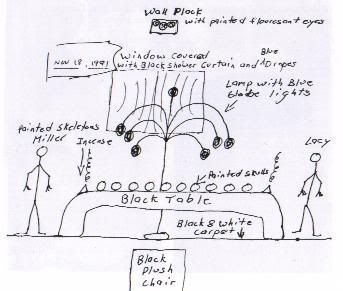 Wall Plock
with painted fluoresant eyes
NOV 18, 1991
Window Covered
with Black Shower Curtain and Blue Drapes
Lamp with Blue
Globe lights
Painted Skeletons
Miller
Incense
Lacy
Painted skulls
Black Table
Black & white
carpet
Black
Plush
Chair